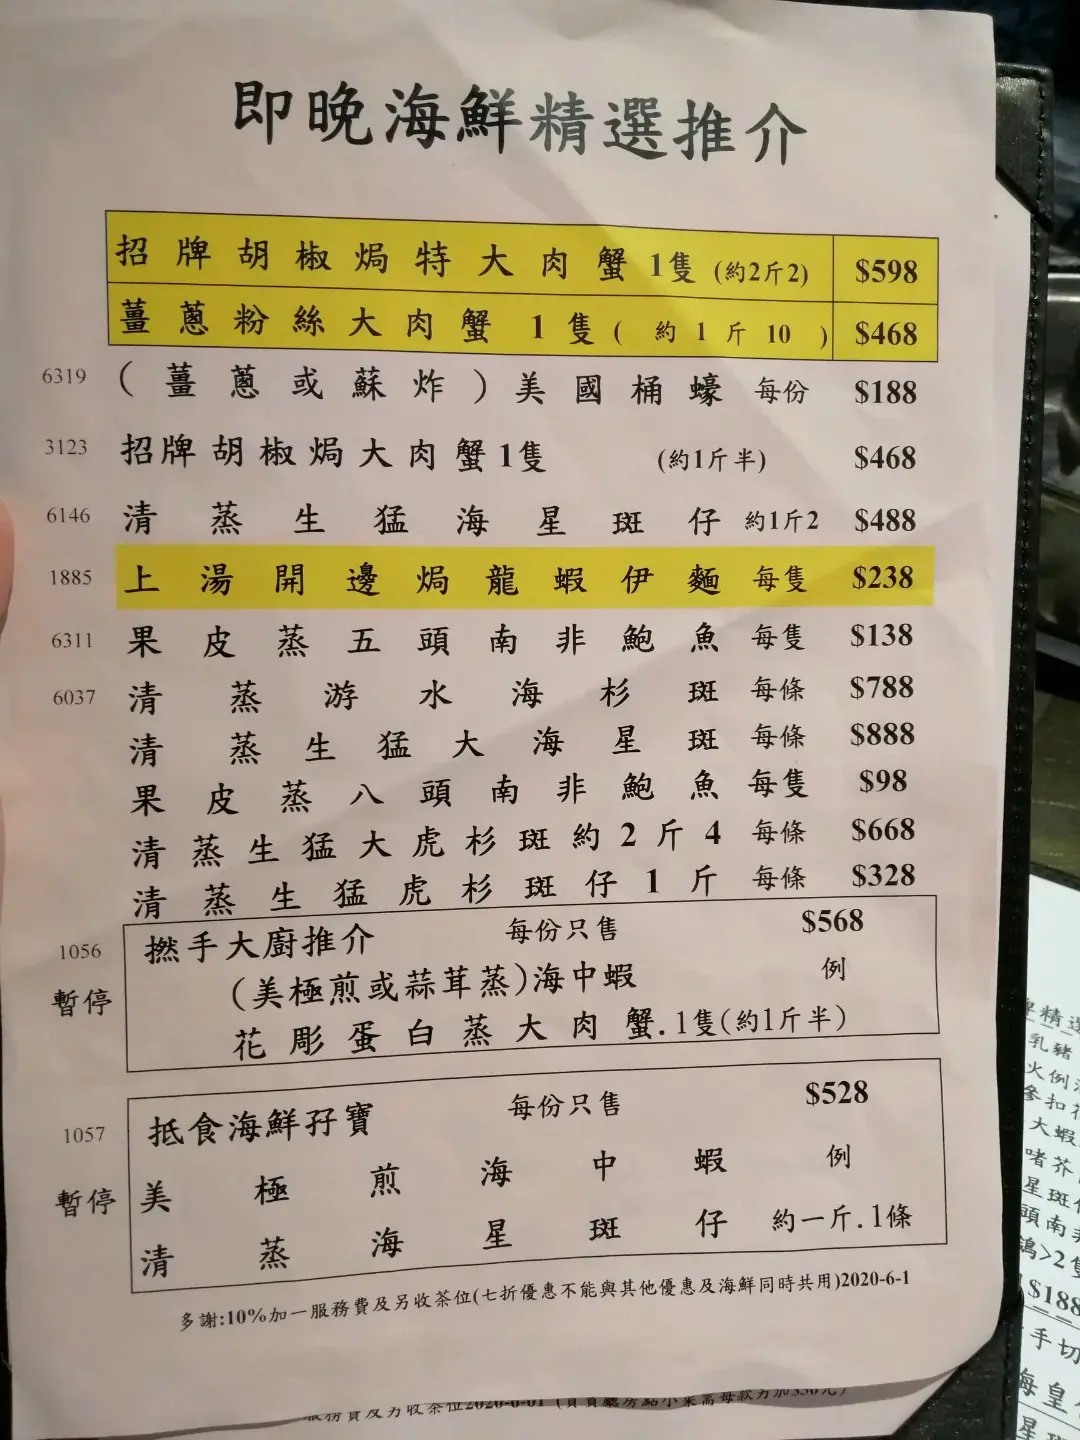 即晚海鮮精選推介
招牌胡椒焗特大肉蟹1隻 (約2斤2) $598
薑蔥粉絲大肉蟹 1隻( 約1斤10 ) $468
6319 (薑蔥或蘇炸)美國桶蠔 每份 $188
3123 招牌胡椒焗大肉蟹1隻 (約1斤半) $468
6146 清蒸生猛海星斑仔 約1斤2 $488
1885 上湯開邊焗龍蝦伊麵 每隻 $238
6311 果皮蒸五頭南非鮑魚 每隻 $138
6037 清蒸游水海杉斑 每條 $788
清蒸生猛大海星斑 每條 $888
果皮蒸八頭南非鮑魚 每隻 $98
清蒸生猛大虎杉斑約2斤4 每條 $668
清蒸生猛虎杉斑仔1斤 每條 $328
1056 撚手大廚推介 每份只售 $568
暫停 (美極煎或蒜茸蒸)海中蝦 例
花彫蛋白蒸大肉蟹.1隻(約1斤半)
1057 抵食海鮮孖寶 每份只售 $528
暫停 美極煎海中蝦 例
清蒸海星斑仔 約一斤.1條
多謝:10%加一服務費及另收茶位(七折優惠不能與其他優惠及海鮮同時共用)2020-6-1
服務費及另收茶位2020-6-01
精選
乳豬
火例
參扣
大蝦
啫芥
星斑
頭南
鴿>2隻
$188
手切
海皇
星斑